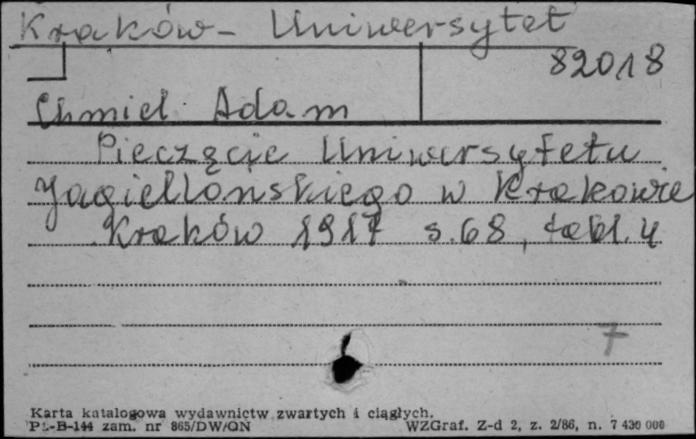 Kraków - Uniwersytet
82018
Chmiel Adam
Pieczęcie Uniwersytetu
Jagiellońskiego w Krakowie
Kraków 1917 s. 68, tabl. 4
7
Karta katalogowa wydawnictw zwartych i ciągłych.
Pu-B-144 zam. nr 865/DW/ON WZGraf. Z-d 2, z. 2/86, n. 7 430 000